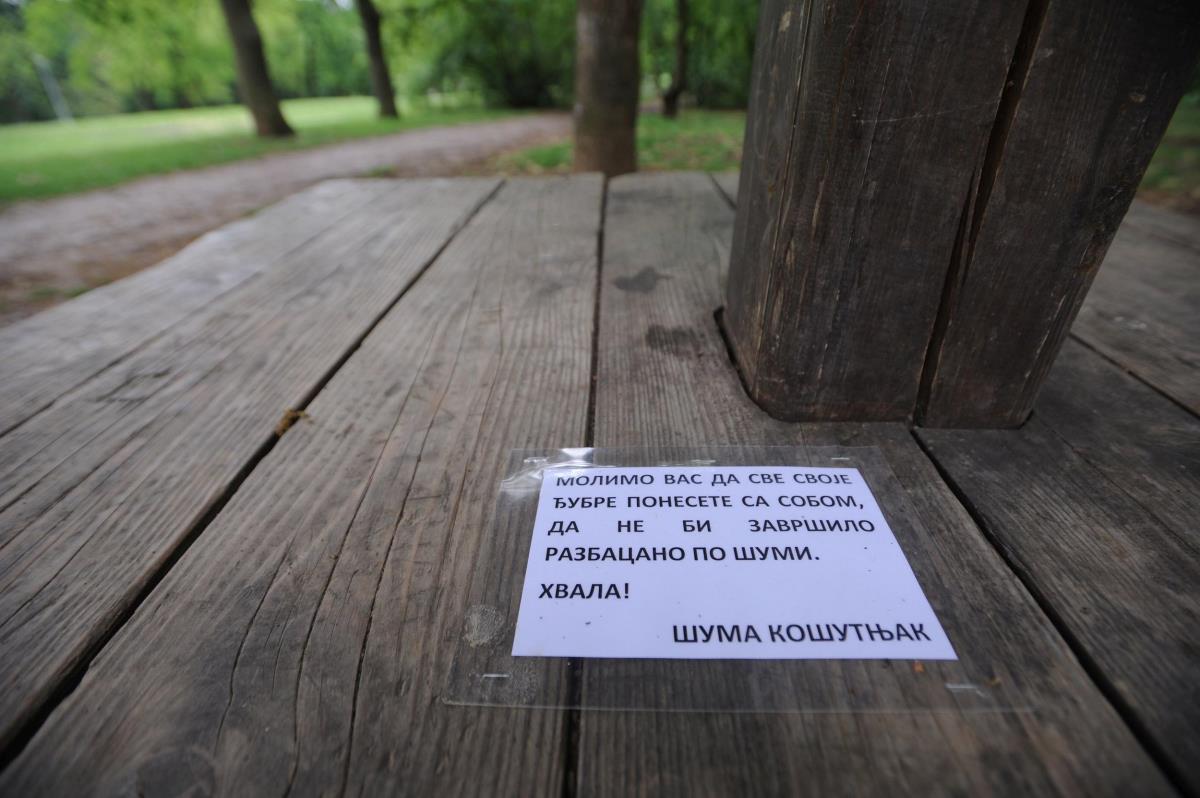 МОЛИМО ВАС ДА СВЕ СВОЈЕ
ЂУБРЕ ПОНЕСЕТЕ СА СОБОМ,
ДА НЕ БИ ЗАВРШИЛО
РАЗБАЦАНО ПО ШУМИ.
ХВАЛА!
ШУМА КОШУТЊАК